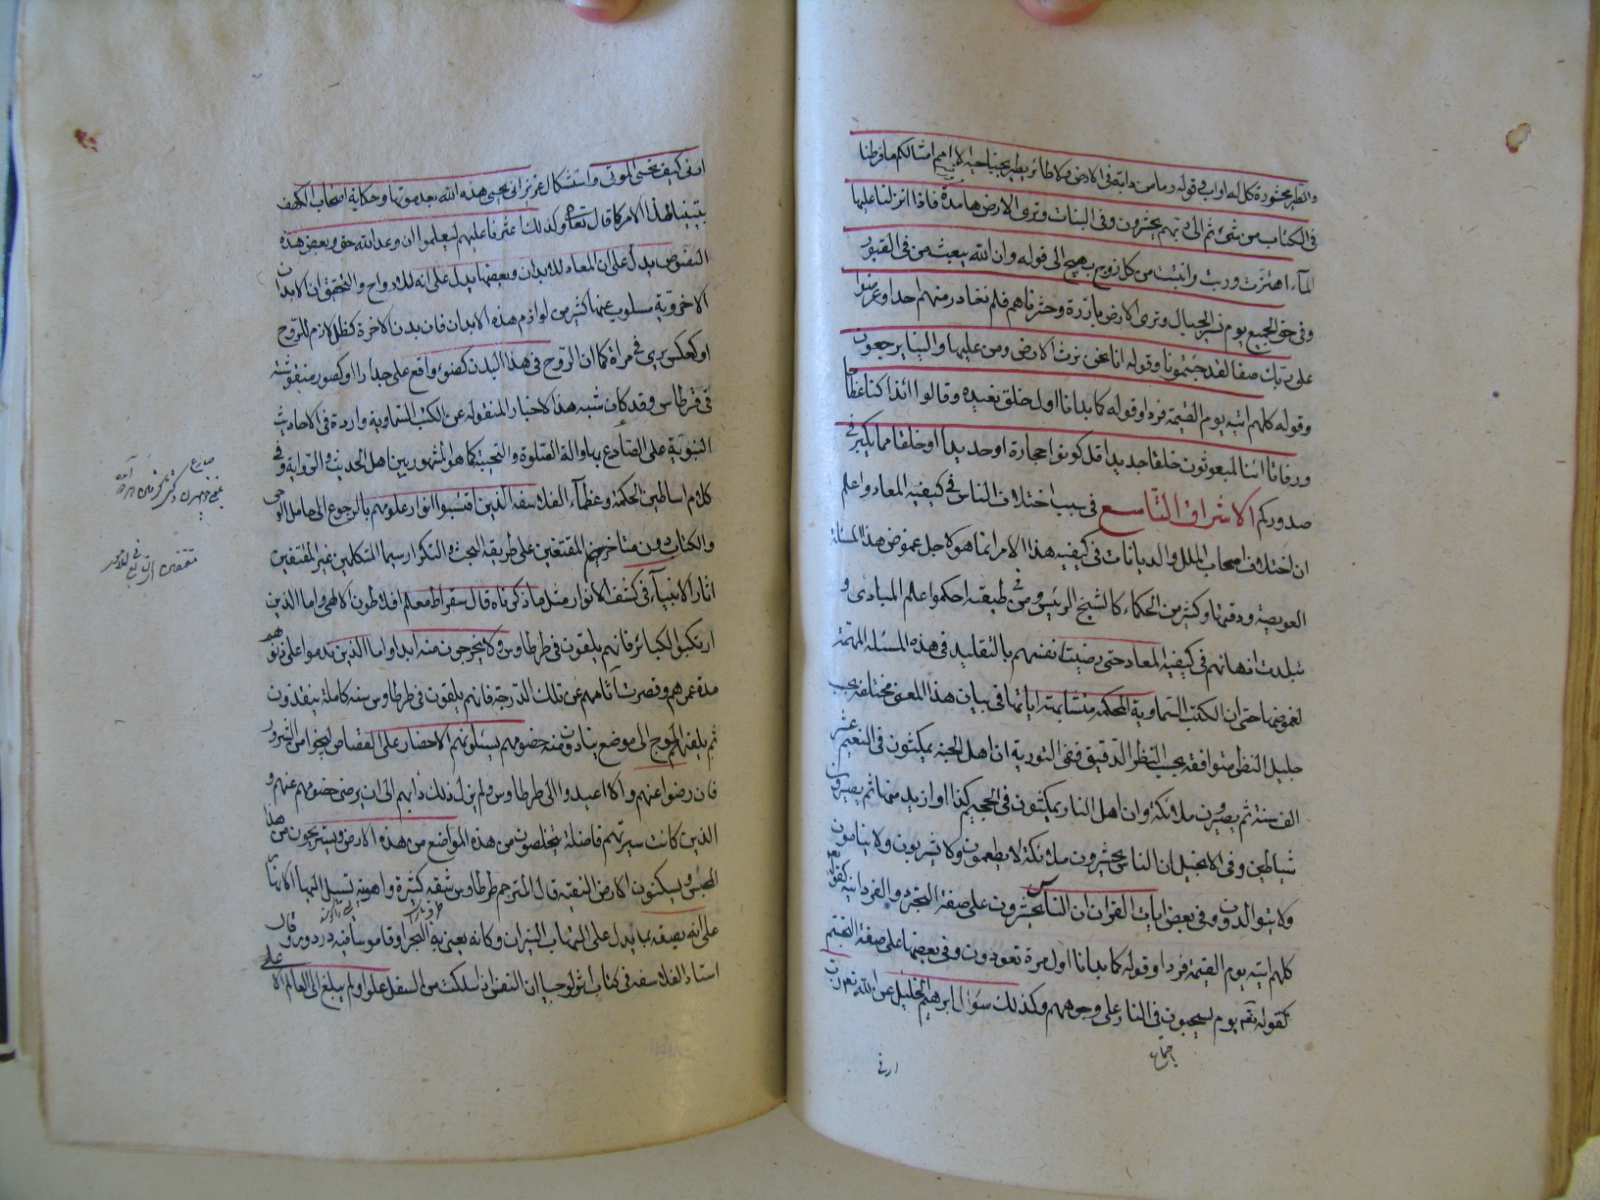 والطير محشورة كل له اواب وفى قوله وما من دابة فى الارض ولا طائر يطير بجناحيه الا امم امثالكم ما فرطنا
فى الكتاب من شئ ثم الى ربهم يحشرون وفى النبات وترى الارض هامدة فاذا انزلنا عليها
الماء اهتزت وربت وانبتت من كل زوج بهيج الى قوله وان الله يبعث من فى القبور
وفى حق الجميع يوم نسير الجبال وترى الارض بارزة وحشرناهم فلم نغادر منهم احدا وعرضوا
على ربك صفا لقد جئتمونا وقوله انا نحن نرث الارض ومن عليها والينا يرجعون
وقوله كلهم اتيه يوم القيمة فردا وقوله كما بدانا اول خلق نعيده وقالوا ائذا كنا عظاما
ورفاتا ائنا لمبعوثون خلقا جديدا قل كونوا حجارة او حديدا او خلقا مما يكبر فى
صدوركم الاشراق التاسع فى سبب اختلاف الناس فى كيفية المعاد واعلم
ان اختلاف اصحاب الملل والديانات فى كيفية هذا الامر انما هو لاجل غموض هذا المسئلة
العويصة ودقتها وكثير من الحكماء كالشيخ الرئيس ومن فى طبقته احكموا علم المبادى و
تبلدت اذهانهم فى كيفية المعاد حتى رضيت نفسهم بالتقليد فى هذه المسئلة المهمة
لغموضها حتى ان الكتب السماوية المحكمة متشابهة اياتها فى بيان هذا المعنى مختلفة بحسب
جليل النظر متوافقة بحسب النظر الدقيق ففى التورية ان اهل الجنة يمكثون فى النعيم عشر
الف سنة ثم يصيرون ملائكة وان اهل النار يمكثون فى الجحيم كذا او ازيد منها ثم يصيرون
شياطين وفى الانجيل ان الناس يحشرون ملائكة لا يطعمون ولا يشربون ولا ينامون
ولا يتوالدون وفى بعض ايات القران ان الناس يحشرون على صفة التجرد والفردانية كقوله
كلهم اتيه يوم القيمة فردا وقوله كما بدانا اول مرة تعودون وفى بعضها على صفة التجسم
كقوله تعم يوم يسحبون فى النار على وجوههم وكذلك سؤال ابرهيم الخليل عن الله تعم رب
ارنى
ارنى كيف تحيى الموتى واستشكال عزير انى يحيى هذه الله بعد موتها وحكاية اصحاب الكهف
تبيينا لهذا الامر كما قال تعم وكذلك اعثرنا عليهم ليعلموا ان وعد الله حق وبعض هذه
النصوص يدل على ان المعاد للابدان وبعضها يدل على انه للارواح والتحقيق ان الابدان
الاخروية مسلوب عنها كثير من لوازم هذه الابدان فان بدن الاخرة كظل لازم للروح
او كعكس يرى فى مراة كما ان الروح فى هذا البدن كضوء واقع على جدار او كصور منقوشة
فى قرطاس وقد كان شبه هذا الاخبار المنقولة عن الكتب السماوية واردة فى الاحاديث
النبوية على الصادع بها واله الصلوة والتحية كما هو المشهور بين اهل الحديث والرواية وفى
كلام اساطين الحكمة وعظماء الفلاسفة الذين اقتبسوا انوار علومهم بالرجوع الى حامل الوحى
والكتاب دون متاخريهم المقتفين على طريقة البحث والتكرار سيما المتكلمين غير المقتفين
اثار الانبياء فى كشف الانوار مثل ما ذكرناه قال سقراط معلم افلاطون الالهى واما الذين
ارتكبوا الكبائر فانهم يلقون فى طرطاوس ولا يخرجون منه ابدا واما الذين ندموا على ذنوبهم
مدة عمرهم وقصرت اثامهم عن تلك الدرجة فانهم يلقون فى طرطاوس سنة كاملة يتعذبون
ثم يلقيهم الموج الى موضع ينادون منه خصومهم يسئلونهم الاحضار على القصاص لينجوا من الشرور
فان رضوا عنهم والا اعيدوا الى طرطاوس ولم يزل ذلك دابهم الى ان يرضى خصومهم عنهم و
الذين كانت سيرتهم فاضلة يتخلصون من هذه المواضع من هذه الارض ويستريحون من هذا
المحبس ويسكنون الارض النقية قال المترجم طرطاوس شق كبير واهوية تسيل اليها الانهار
على انه يصفه بما يدل على التهاب النيران وكانه يعنى به البحر او قاموسا فيه دردور وقال
استاد الفلاسفة فى كتاب اثولوجيا ان النفس اذ اسلكت من السفل علوا ولم يبلغ الى العالم الاعلى